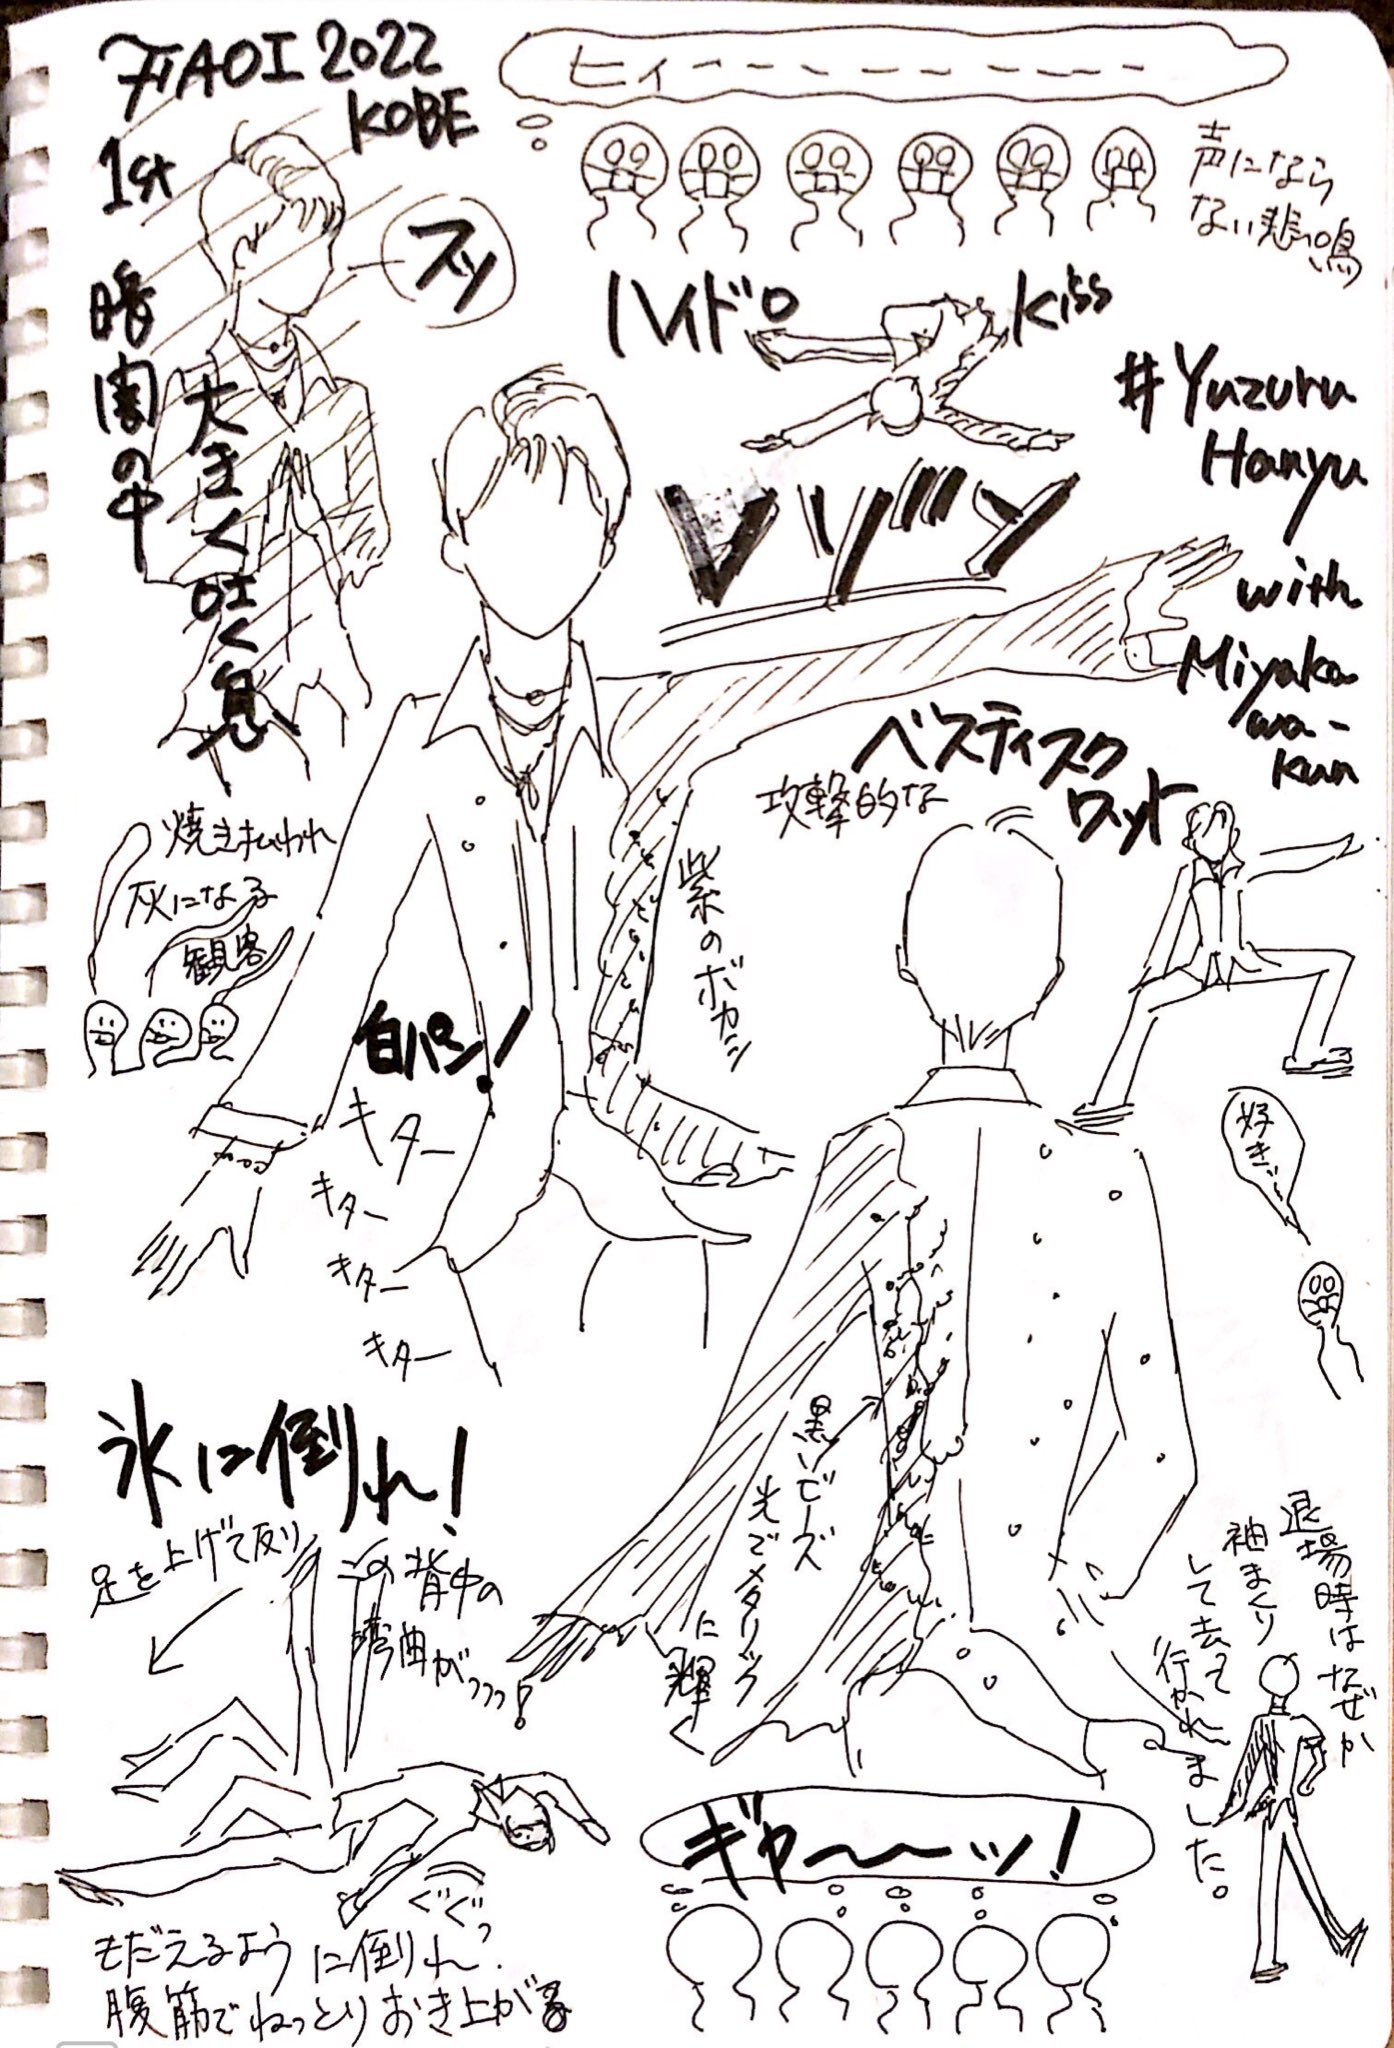 FAOI 2022
KOBE
1st
ヒィーーーーーーーー
声になら
ない悲鳴
スッ
暗闇の中
大きく吐く息
ハイドロ
Kiss
#Yuzuru
Hanyu
with
Miyaka
wa-
kun
レゾン
ベスティスク
ワット
攻撃的な
焼き払われ
灰になる
観客
紫のボカシ
白パン!
キター
キター
キター
キター
好き…
氷に倒れ!
足を上げて反り
この背中の
湾曲がっっっ!
黒いビーズ
光でメタリック
に輝く
退場時はなぜか
袖まくり
して去って
行かれました。
ぐぐっ
もだえるように倒れ
腹筋でねっとりおき上がる
ギャ〜〜ッ!